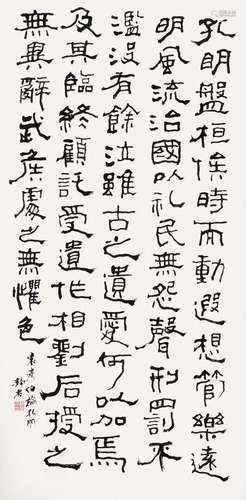 孔明盤桓俟時而動遐想管樂遠
明風流治國以礼民無怨聲刑罰不
濫沒有餘泣雖古之遺愛何以加焉
及其臨終顧託受遺作相劉后授之
無異辭武侯處之無懼色
袁彥伯論孔明